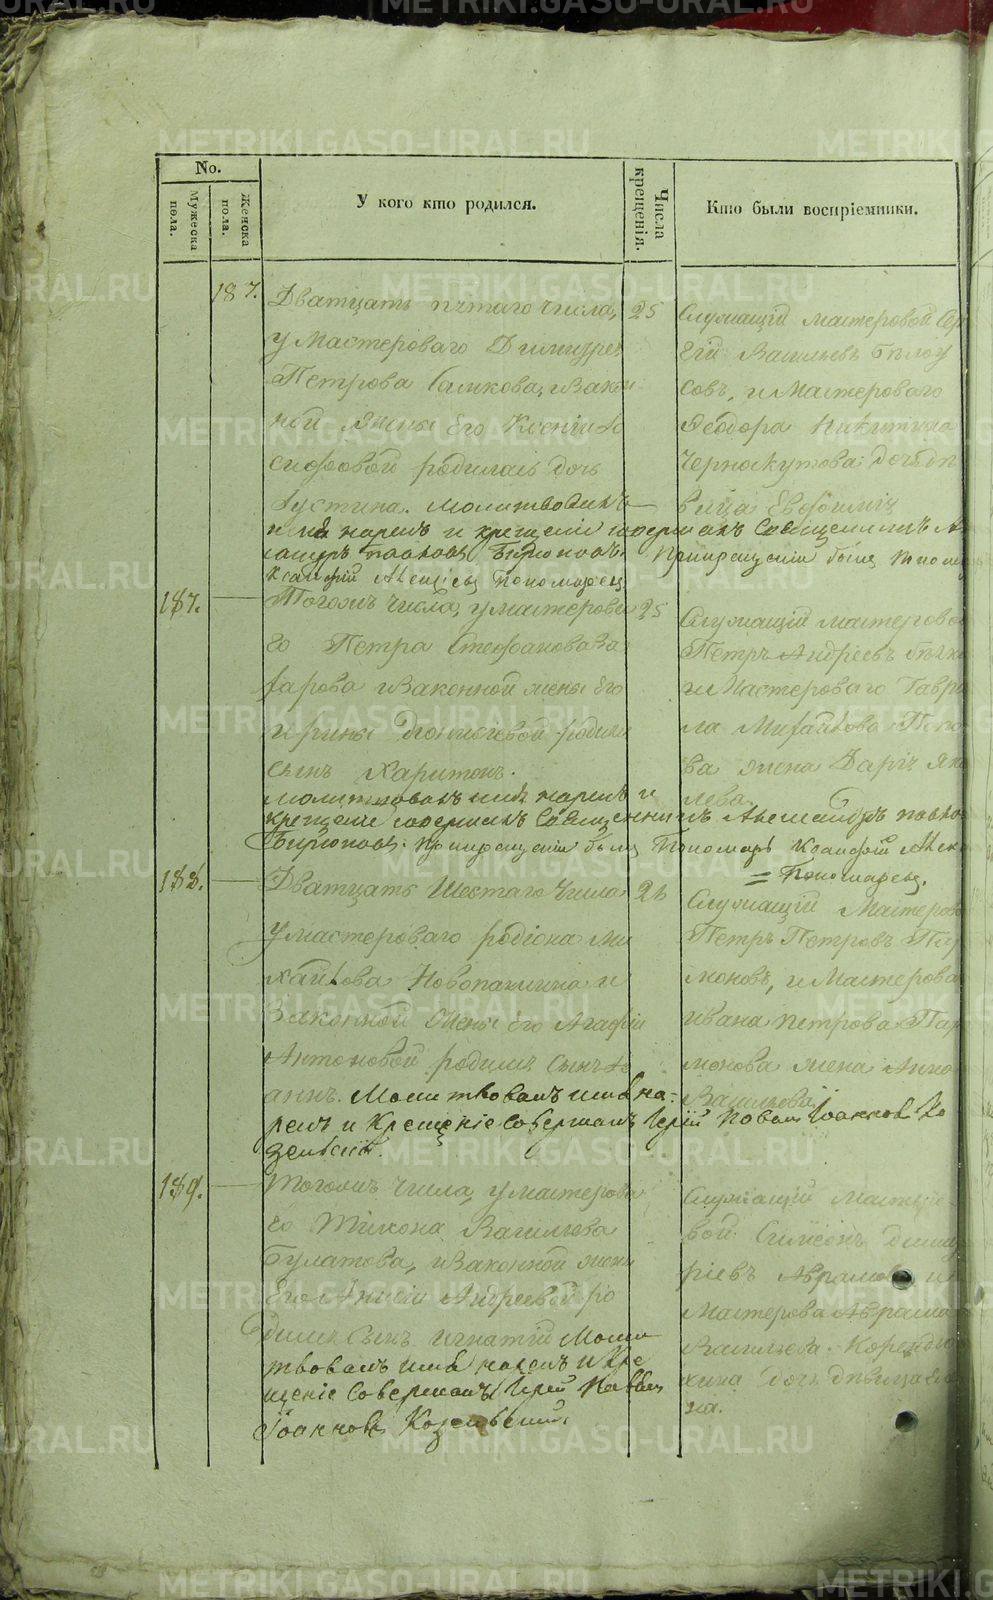 METRIKI.GASO-URAL.RU
No.
Мужеска пола.
Женска пола.
У кого кто родился.
Числа крещенія.
Кто были воспріемники.
187.
Дватцать пятаго числа,
25
у мастероваго Димитрея
Петрова
ной жены Его Ксении
сифовой родилась дочь
Іустина. Молитвовалъ
имя нарекъ и крещеніе совершалъ Священникъ
Бирюковъ. При крещеніи былъ
Пономаревъ
Служащій мастеровой
Васильевъ Белоу
совъ, и мастероваго
Феодора Никитина
Черноскутова дочь дѣ
вица Евфимия
187.
Тогожъ числа, у мастерова
25
го Петра Стефанова За
харова и законной жены Его
Ирины родился
сынъ Харитонъ.
молитвовалъ имя нарекъ и
крещеніе совершалъ Священникъ Александръ
Бирюковъ. При крещеніи былъ Пономарь
= Пономаревъ.
Служащій мастеровой
Петръ Андреевъ
и мастероваго Гаври
ла Михайлова Попо
ва жена Дарія Яко
влева
188.
Дватцать шестаго числа
26
у мастероваго Родіона Ми
хайлова Новопашина и
законной жены Его Агафіи
Антоновой родился сынъ Іо
аннъ. Молитвовалъ имя на-
рекъ и Крещеніе совершалъ Іерей Павелъ Іоанновъ Ко
зельскій.
Служащій Мастеровой
Петръ Петровъ Пар
моновъ, и мастерова
Ивана Петрова Пар
монова жена Анна
Васильева
189.
Тогожъ числа, у мастерова
го Тихона Васильева
Булатова, и законной жены
Его Анисіи Андреевой ро
дился сынъ Игнатій Моли
твовалъ имя нарекъ и Кре
щеніе совершалъ Іерей Павелъ
Іоанновъ Козельский.
Служащій мастеро
вой Симеонъ Димит
ріевъ Аврамовъ и
мастерова Аврама
Васильева
кина дочь дѣвица
на.